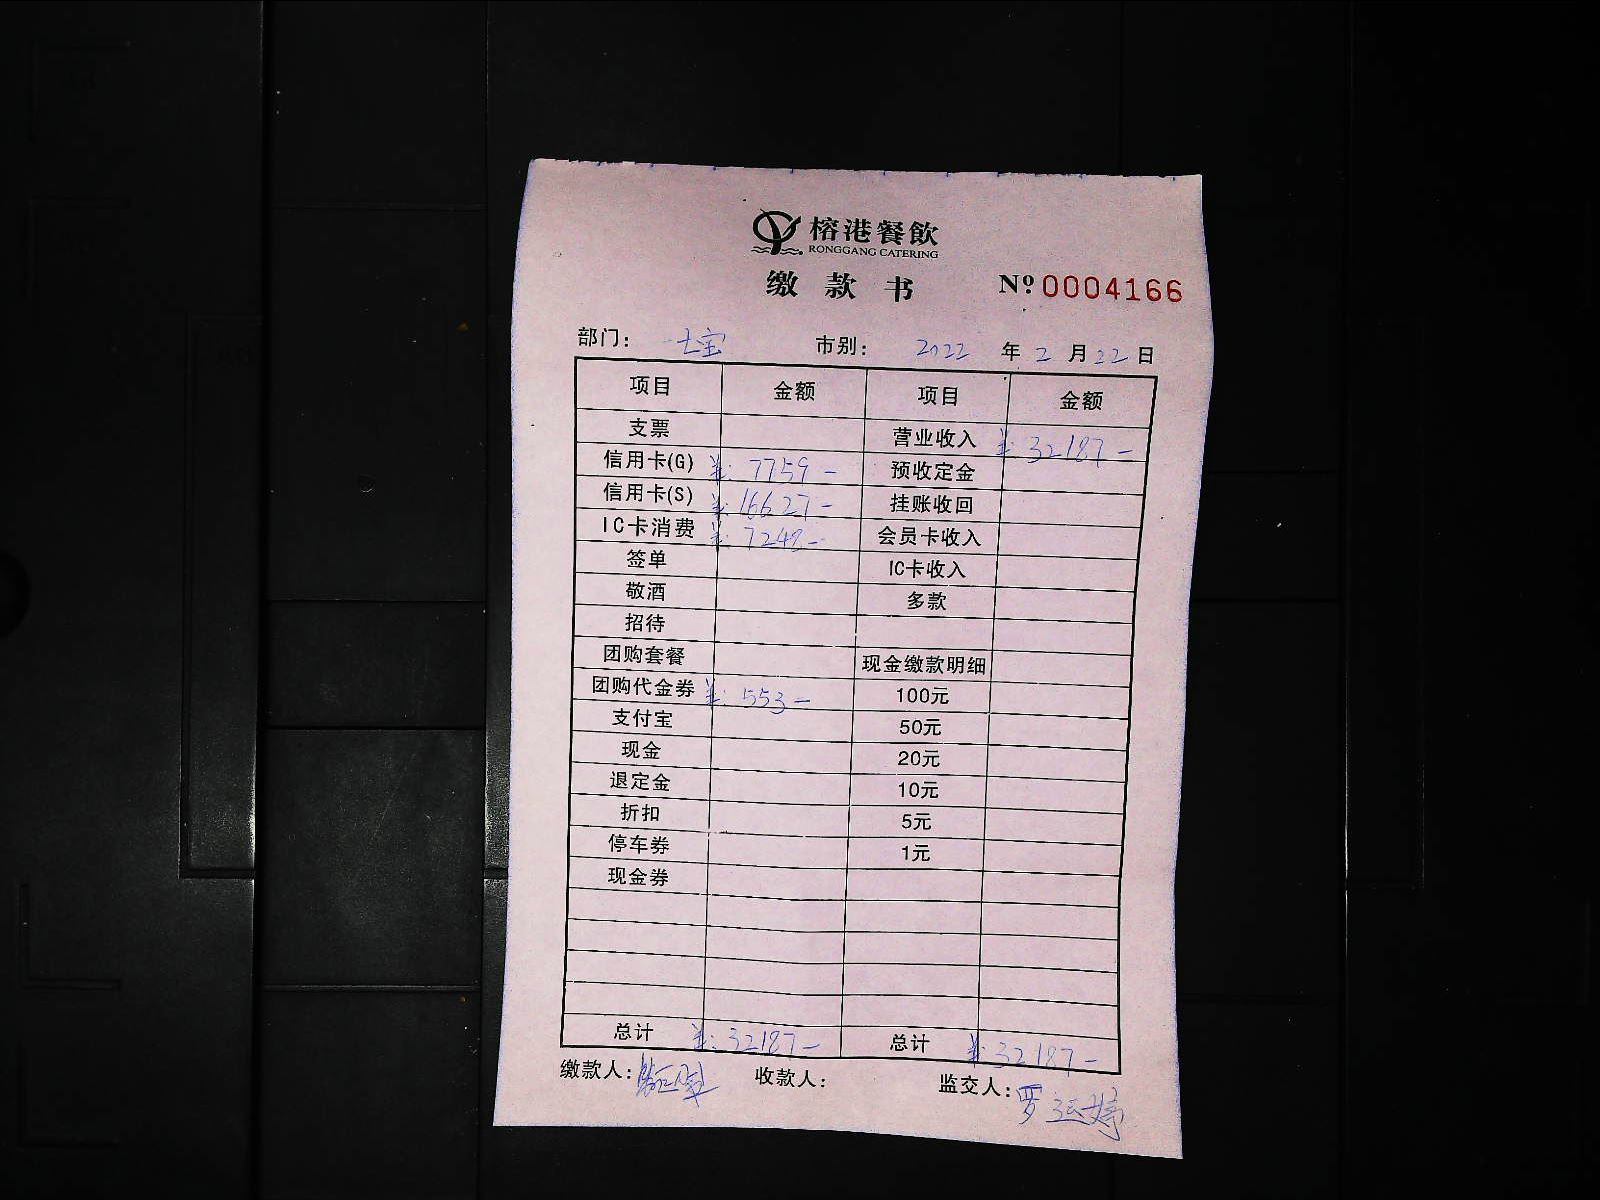 榕港餐飲
RONGGANG CATERING
缴款书 Nº 0004166
部门： 七宝 市别： 2022 年 2 月 22 日
项目 金额 项目 金额
支票 营业收入 ¥: 32187-
信用卡(G) ¥: 7759- 预收定金
信用卡(S) ¥: 16627- 挂账收回
IC卡消费 ¥: 7248- 会员卡收入
签单 IC卡收入
敬酒 多款
招待
团购套餐 现金缴款明细
团购代金券 ¥: 553- 100元
支付宝 50元
现金 20元
退定金 10元
折扣 5元
停车券 1元
现金券
总计 ¥: 32187- 总计 ¥: 32187-
缴款人： 收款人： 监交人： 罗运婷